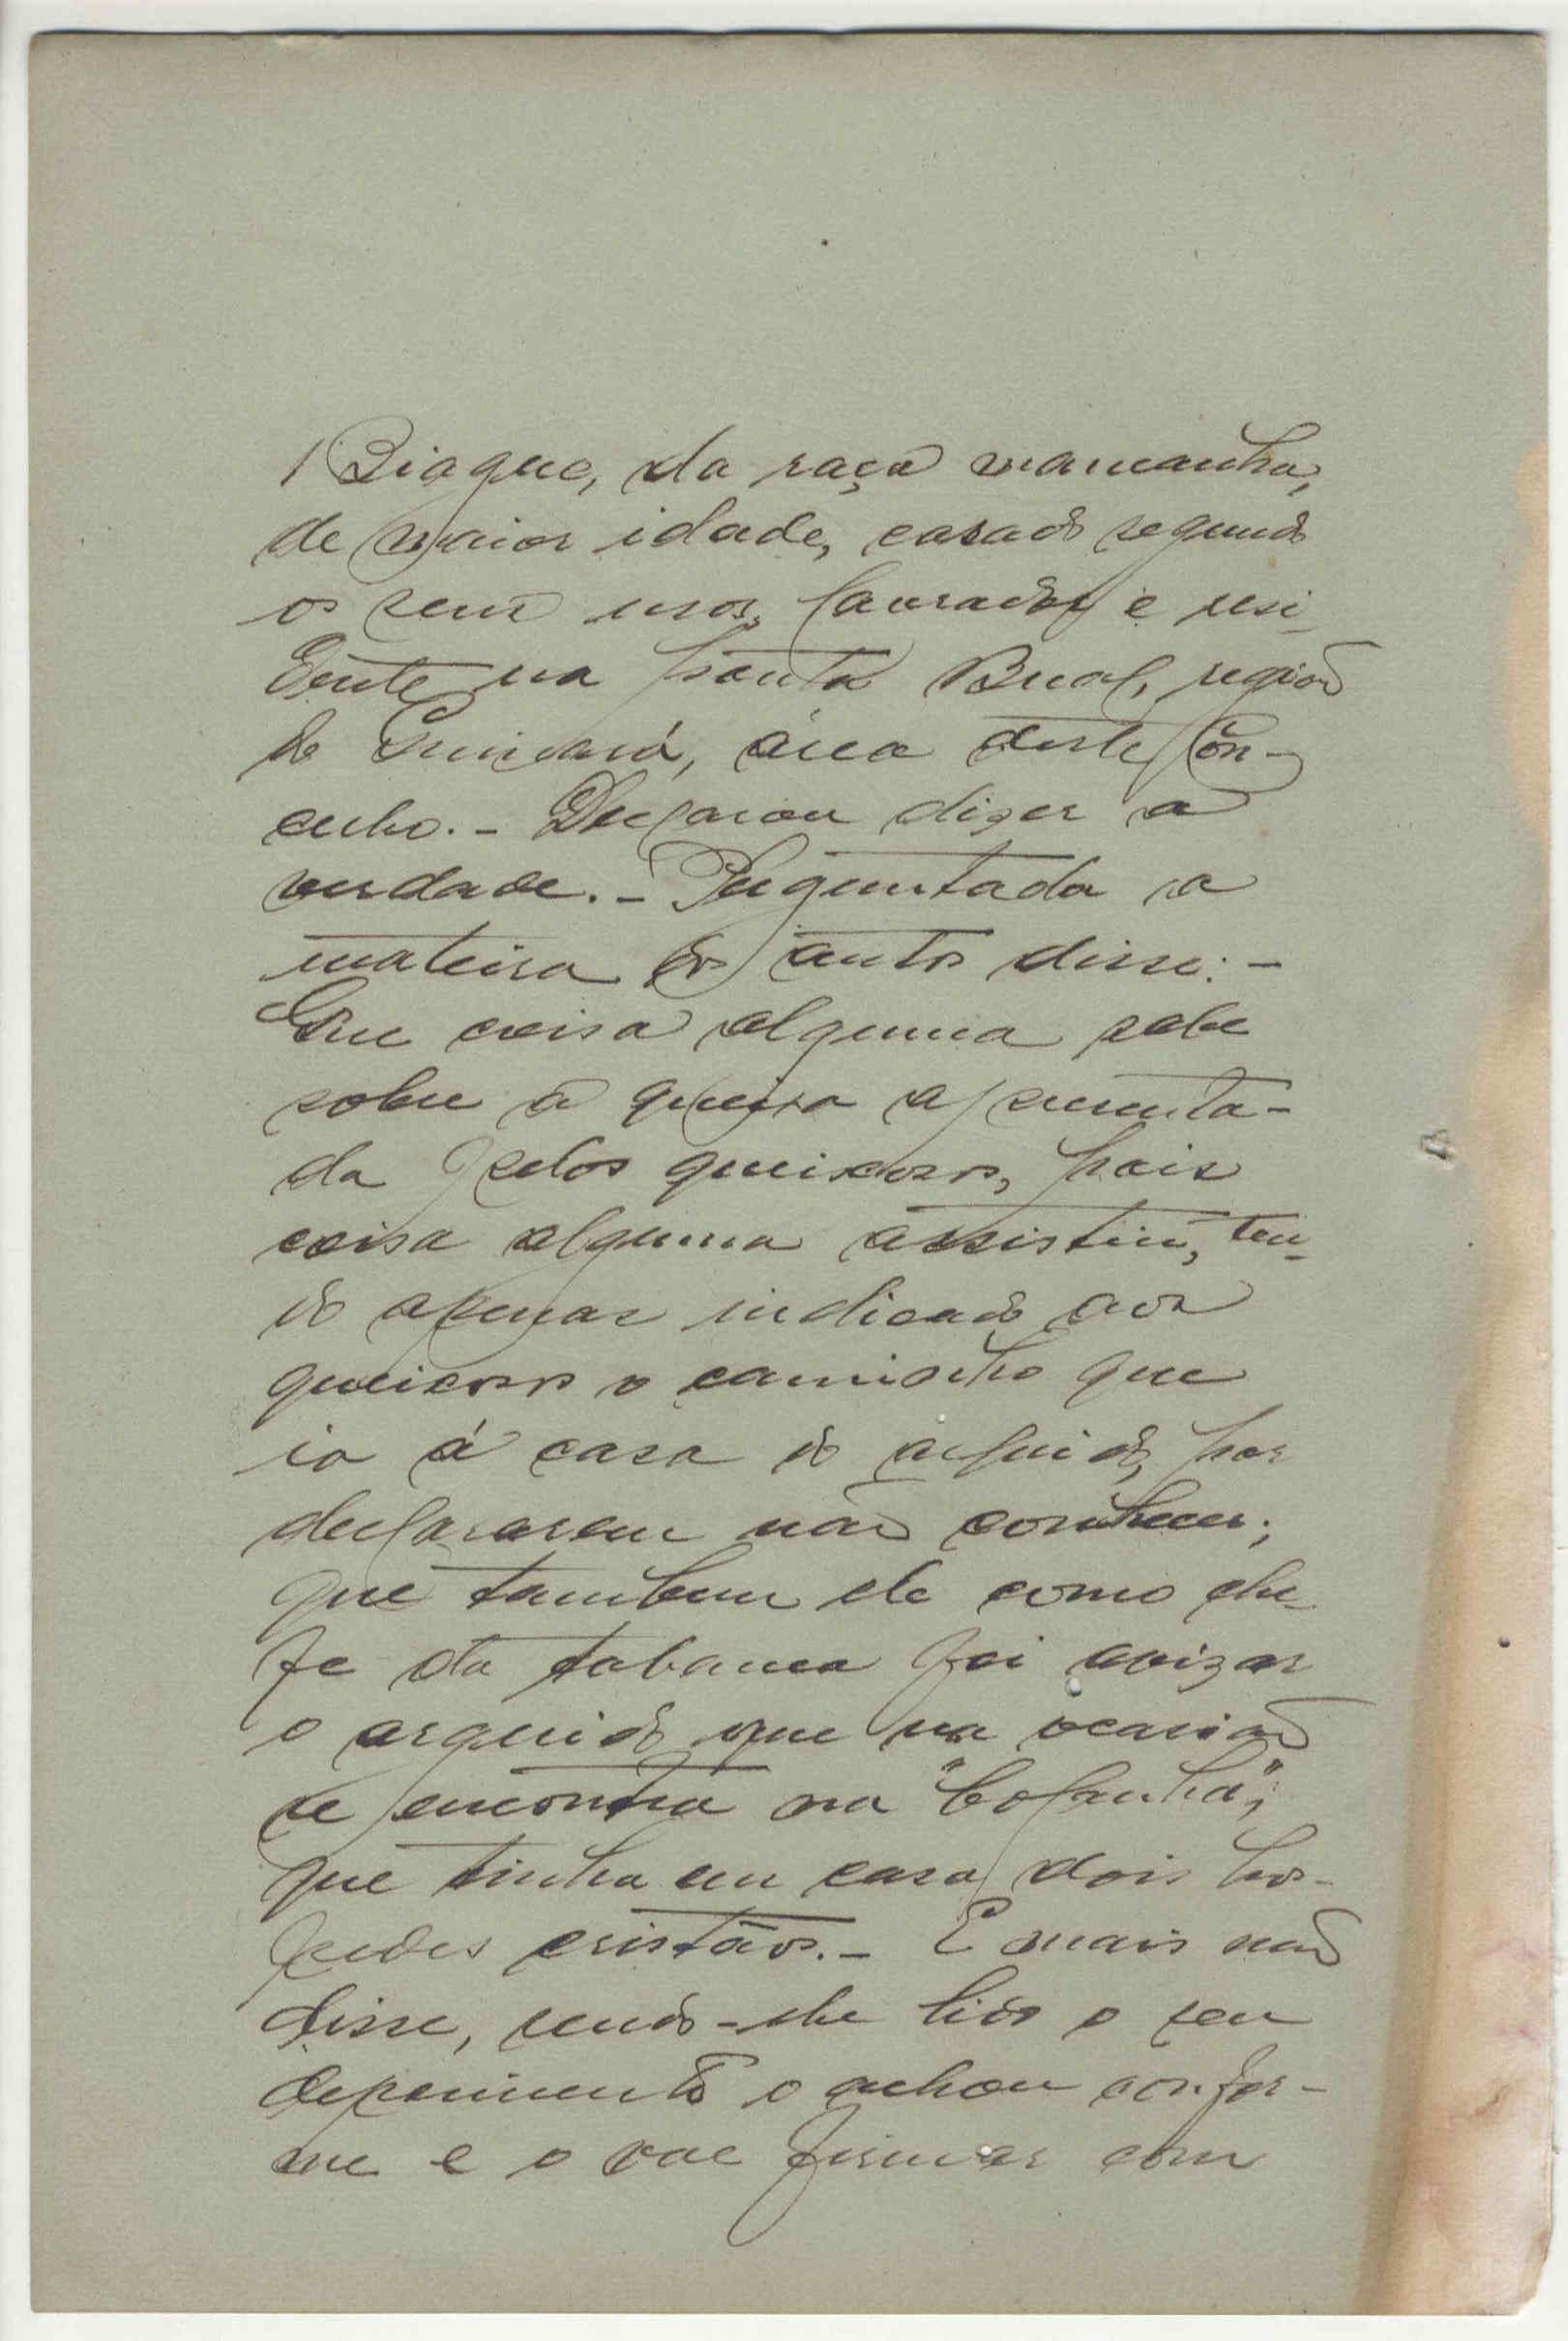 Biague, da raça mamanha,
de maior idade, casado segundo
os seus usos, lavrador e resi-
dente na ponta Bual, região
de área deste Con-
celho. - Declarou dizer a
verdade. - Perguntada a
materia dos autos disse: -
Que coisa alguma sabe
sobre a queixa apresenta-
da pelos queixosos, pois
coisa alguma assistiu, ten-
do apenas indicado aos
queixosos o caminho que
ia á casa do arguido, por
declararem não conhecer;
que tambem ele como che-
fe da tabanca foi avizar
o arguido que na ocasião
se encontra na "bolanha";
que tinha em casa dois hos-
pedes cristãos. - E mais não
disse, sendo-lhe lido o seu
depoimento o achou confor-
me e o vae firmar com